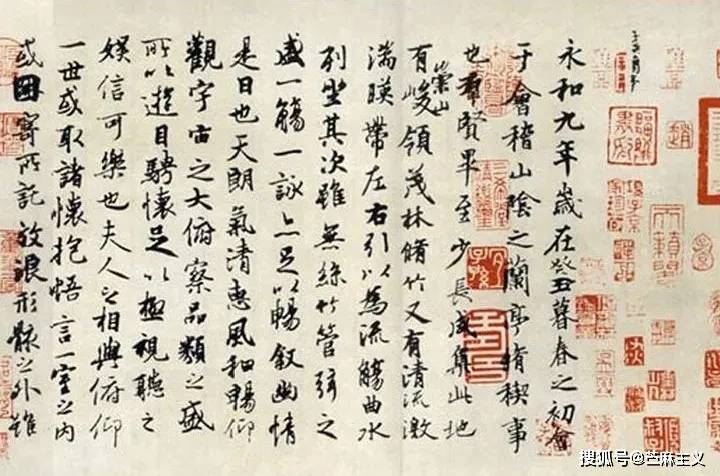 永和九年歲在癸丑暮春之初會
于會稽山陰之蘭亭脩稧事
也羣賢畢至少長咸集此地
有崇山峻領茂林脩竹又有清流激
湍暎帶左右引以為流觴曲水
列坐其次雖無絲竹管弦之
盛一觴一詠亦足以暢敘幽情
是日也天朗氣清惠風和暢仰
觀宇宙之大俯察品類之盛
所以遊目騁懷足以極視聽之
娛信可樂也夫人之相與俯仰
一世或取諸懷抱悟言一室之內
或因寄所託放浪形骸之外雖
趙
搜狐号@芝麻主义